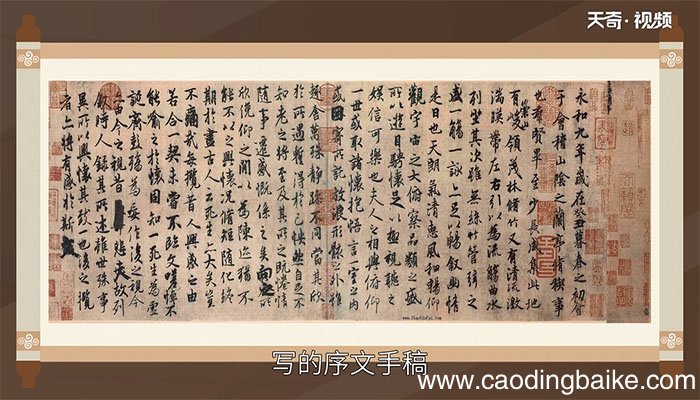 天奇·视频
永和九年歲在癸丑暮春之初會
于會稽山陰之蘭亭脩稧事
也羣賢畢至少長咸集此地
有崇山峻領茂林脩竹又有清流激
湍暎帶左右引以為流觴曲水
列坐其次雖無絲竹管弦之
盛一觴一詠亦足以暢敘幽情
是日也天朗氣清惠風和暢仰
觀宇宙之大俯察品類之盛
所以遊目騁懷足以極視聽之
娛信可樂也夫人之相與俯仰
一世或取諸懷抱悟言一室之內
或因寄所託放浪形骸之外雖
趣舍萬殊靜躁不同當其欣
於所遇暫得於己怏然自足不
知老之將至及其所之既惓情
隨事遷感慨係之矣向之所
欣俛仰之閒以為陳迹猶不
能不以之興懷況脩短隨化終
期於盡古人云死生亦大矣豈
不痛哉每攬昔人興感之由
若合一契未嘗不臨文嗟悼不
能喻之於懷固知一死生為虛
誕齊彭殤為妄作後之視今
亦由今之視昔悲夫故列
敘時人錄其所述雖世殊事
異所以興懷其致一也後之攬
者亦將有感於斯文
写的序文手稿
www.caodingbaike.com